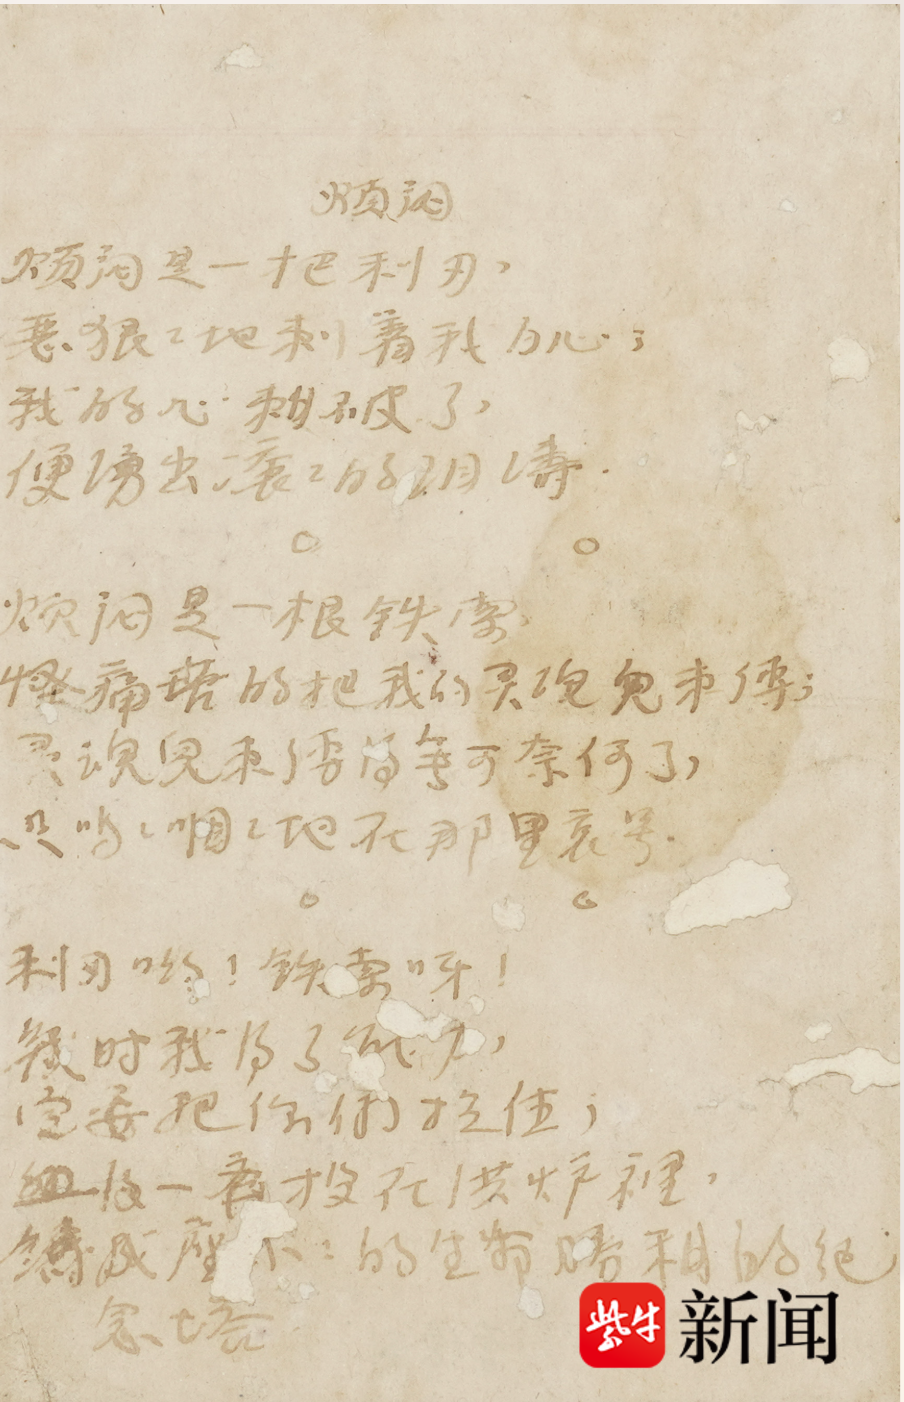 烦闷
烦闷是一把利刃，
恶狠々地刺着我的心；
我的心刺破了，
便涌出滚々的泪涛．
烦闷是一根铁索，
怪痛苦的把我的灵魂儿束缚；
灵魂儿束缚得无可奈何了，
只呜々咽々地在那里哀号．
利刃哟！铁索呀！
几时我得了能力，
定要把你们拴住；
一齐投在洪炉裡，
铸成座 々的生命胜利的纪
念塔
紫牛新闻